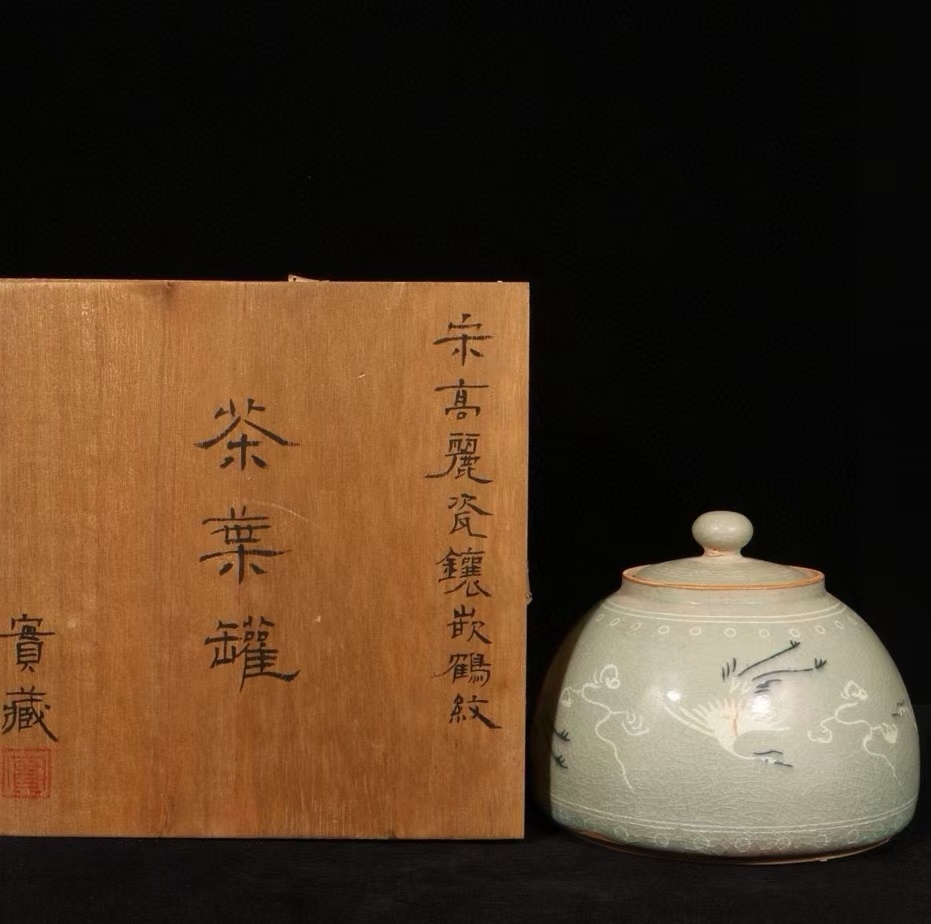 宋高麗瓷鑲嵌鶴紋
茶葉罐
寳藏